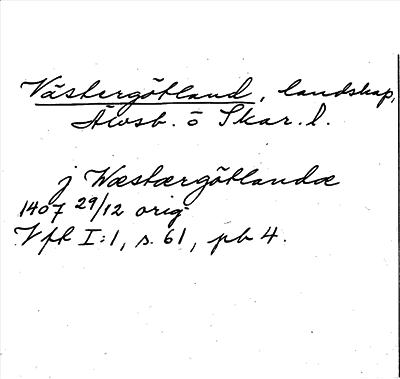 Västergötland, landskap,
Älvsb. o Skar. l.
j Wæstærgötlandæ
1407 29/12 orig
Vfl I:1, s. 61, pb 4.